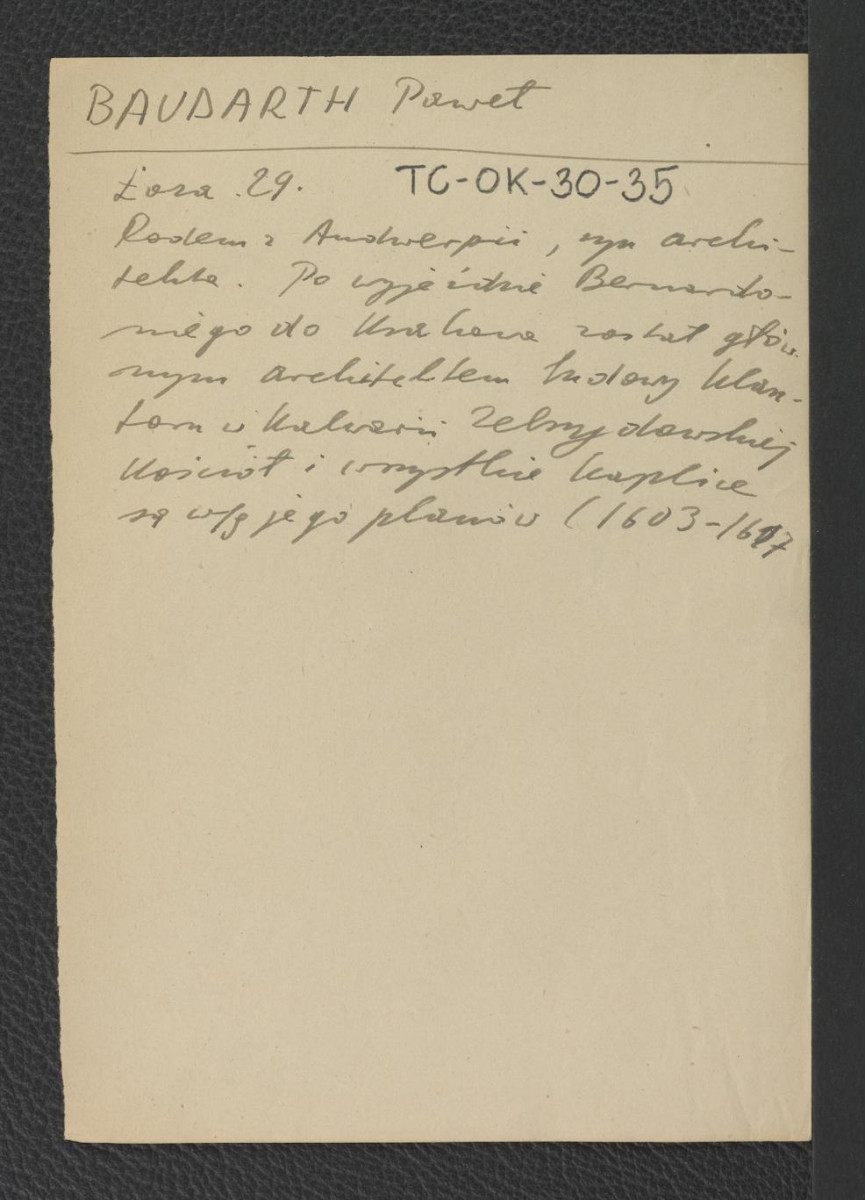 BAUDARTH Paweł
Łoza 29. TC-OK-30-35
Rodem z Andwerpii, syn archi-
tekta. Po wyjeździe Bernardo-
niego do Krakowa został głów-
nym architektem budowy klasz-
toru w Kalwarii Zebrzydowskiej
Kościół i wszystkie kaplice
są w/g jego planów (1603-1617